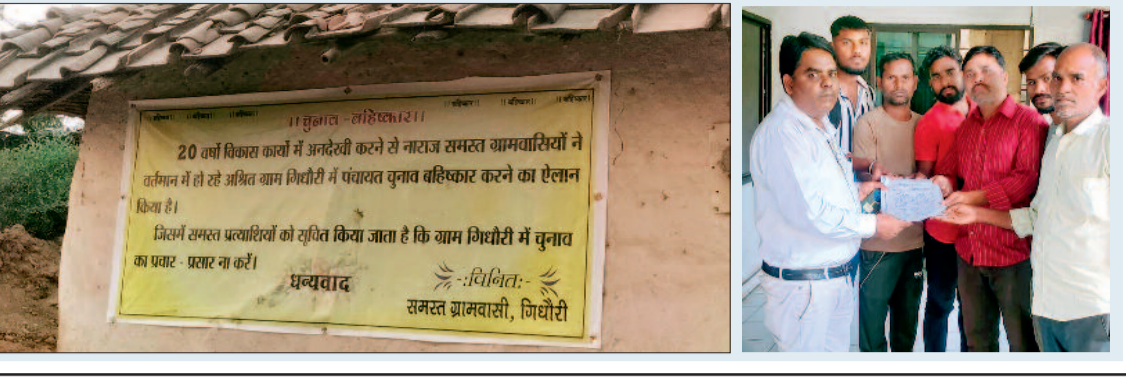 ।। बहिष्कार।। ।। बहिष्कार।। ।। बहिष्कार।। ।। बहिष्कार।। ।। बहिष्कार।। ।। बहिष्कार।।
।। चुनाव - बहिष्कार।।
20 वर्षो विकास कार्यो में अनदेखी करने से नाराज समस्त ग्रामवासियों ने
वर्तमान में हो रहे अश्रित ग्राम गिधौरी में पंचायत चुनाव बहिष्कार करने का ऐलान
किया है।
जिसमें समस्त प्रत्याशियों को सूचित किया जाता है कि ग्राम गिधौरी में चुनाव
का प्रचार - प्रसार ना करें।
धन्यवाद
-:विनित:-
समस्त ग्रामवासी, गिधौरी